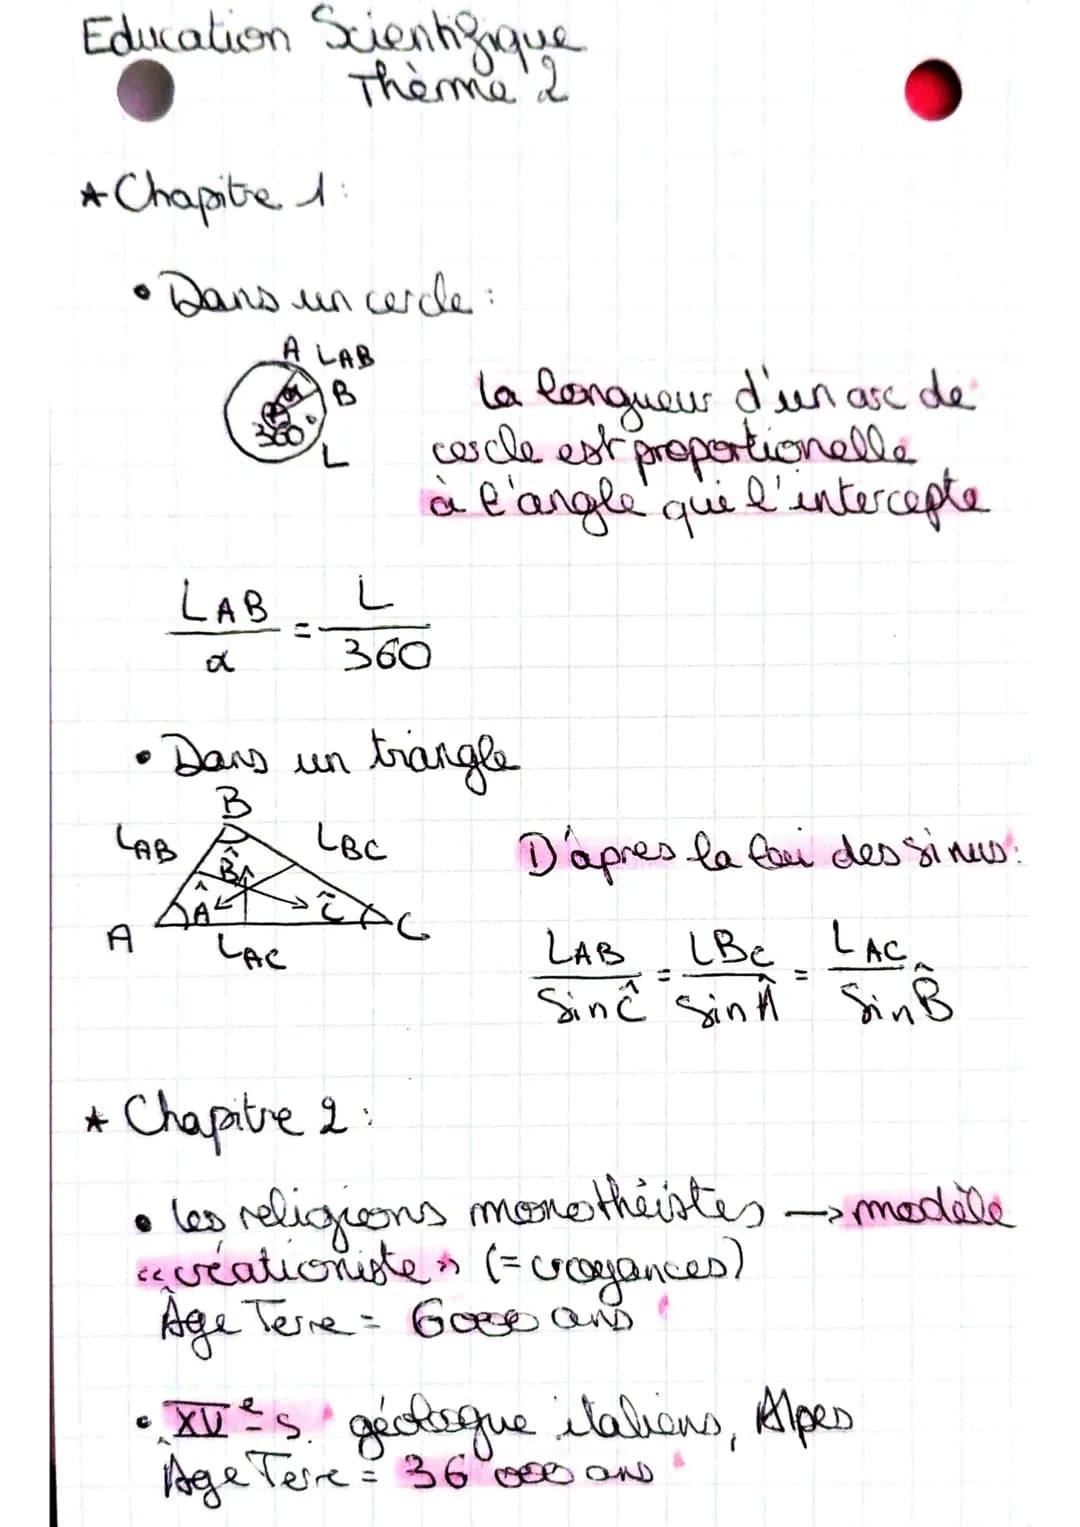 Education Scientifique
Thème 2
★ Chapitre 1:
• Dans un cercle :
A LAB
B
α
360°
L
La longueur d'un arc de
cercle est proportionelle
à l'angle qui l'intercepte
LAB / α = L / 360
• Dans un triangle
B
LAB LBC
B̂
Â Ĉ
A C
LAC
D'apres la loi des sinus:
LAB / Sin Ĉ = LBC / Sin Â = LAC / Sin B̂
★ Chapitre 2 :
• Les religions monothéistes → modèle
« créationiste » (= croyances)
Âge Terre = 6000 ans
• XVe s. géologue italiens, Alpes
Âge Terre = 36 000 ans